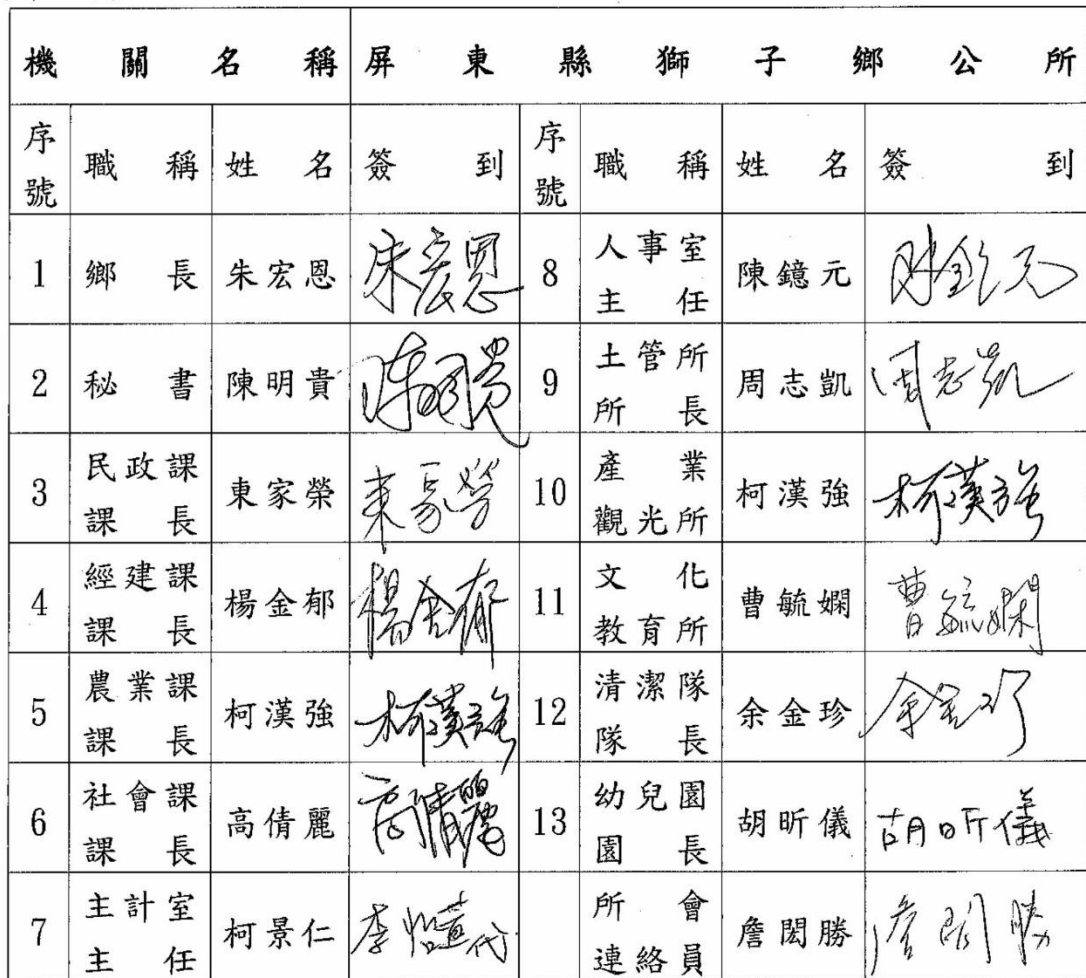 機關名稱 屏東縣獅子鄉公所
序號 職稱 姓名 簽到 序號 職稱 姓名 簽到
1 鄉長 朱宏恩 朱宏恩 8 人事室主任 陳鐿元
2 秘書 陳明貴 陳明貴 9 土管所所長 周志凱 周志凱
3 民政課課長 東家榮 東家榮 10 產業觀光所 柯漢強 柯漢強
4 經建課課長 楊金郁 楊金郁 11 文化教育所 曹毓嫻 曹毓嫻
5 農業課課長 柯漢強 柯漢強 12 清潔隊隊長 余金珍 余金珍
6 社會課課長 高倩麗 高倩麗 13 幼兒園園長 胡昕儀 胡昕儀
7 主計室主任 柯景仁 李 代 所會連絡員 詹閎勝 詹閎勝